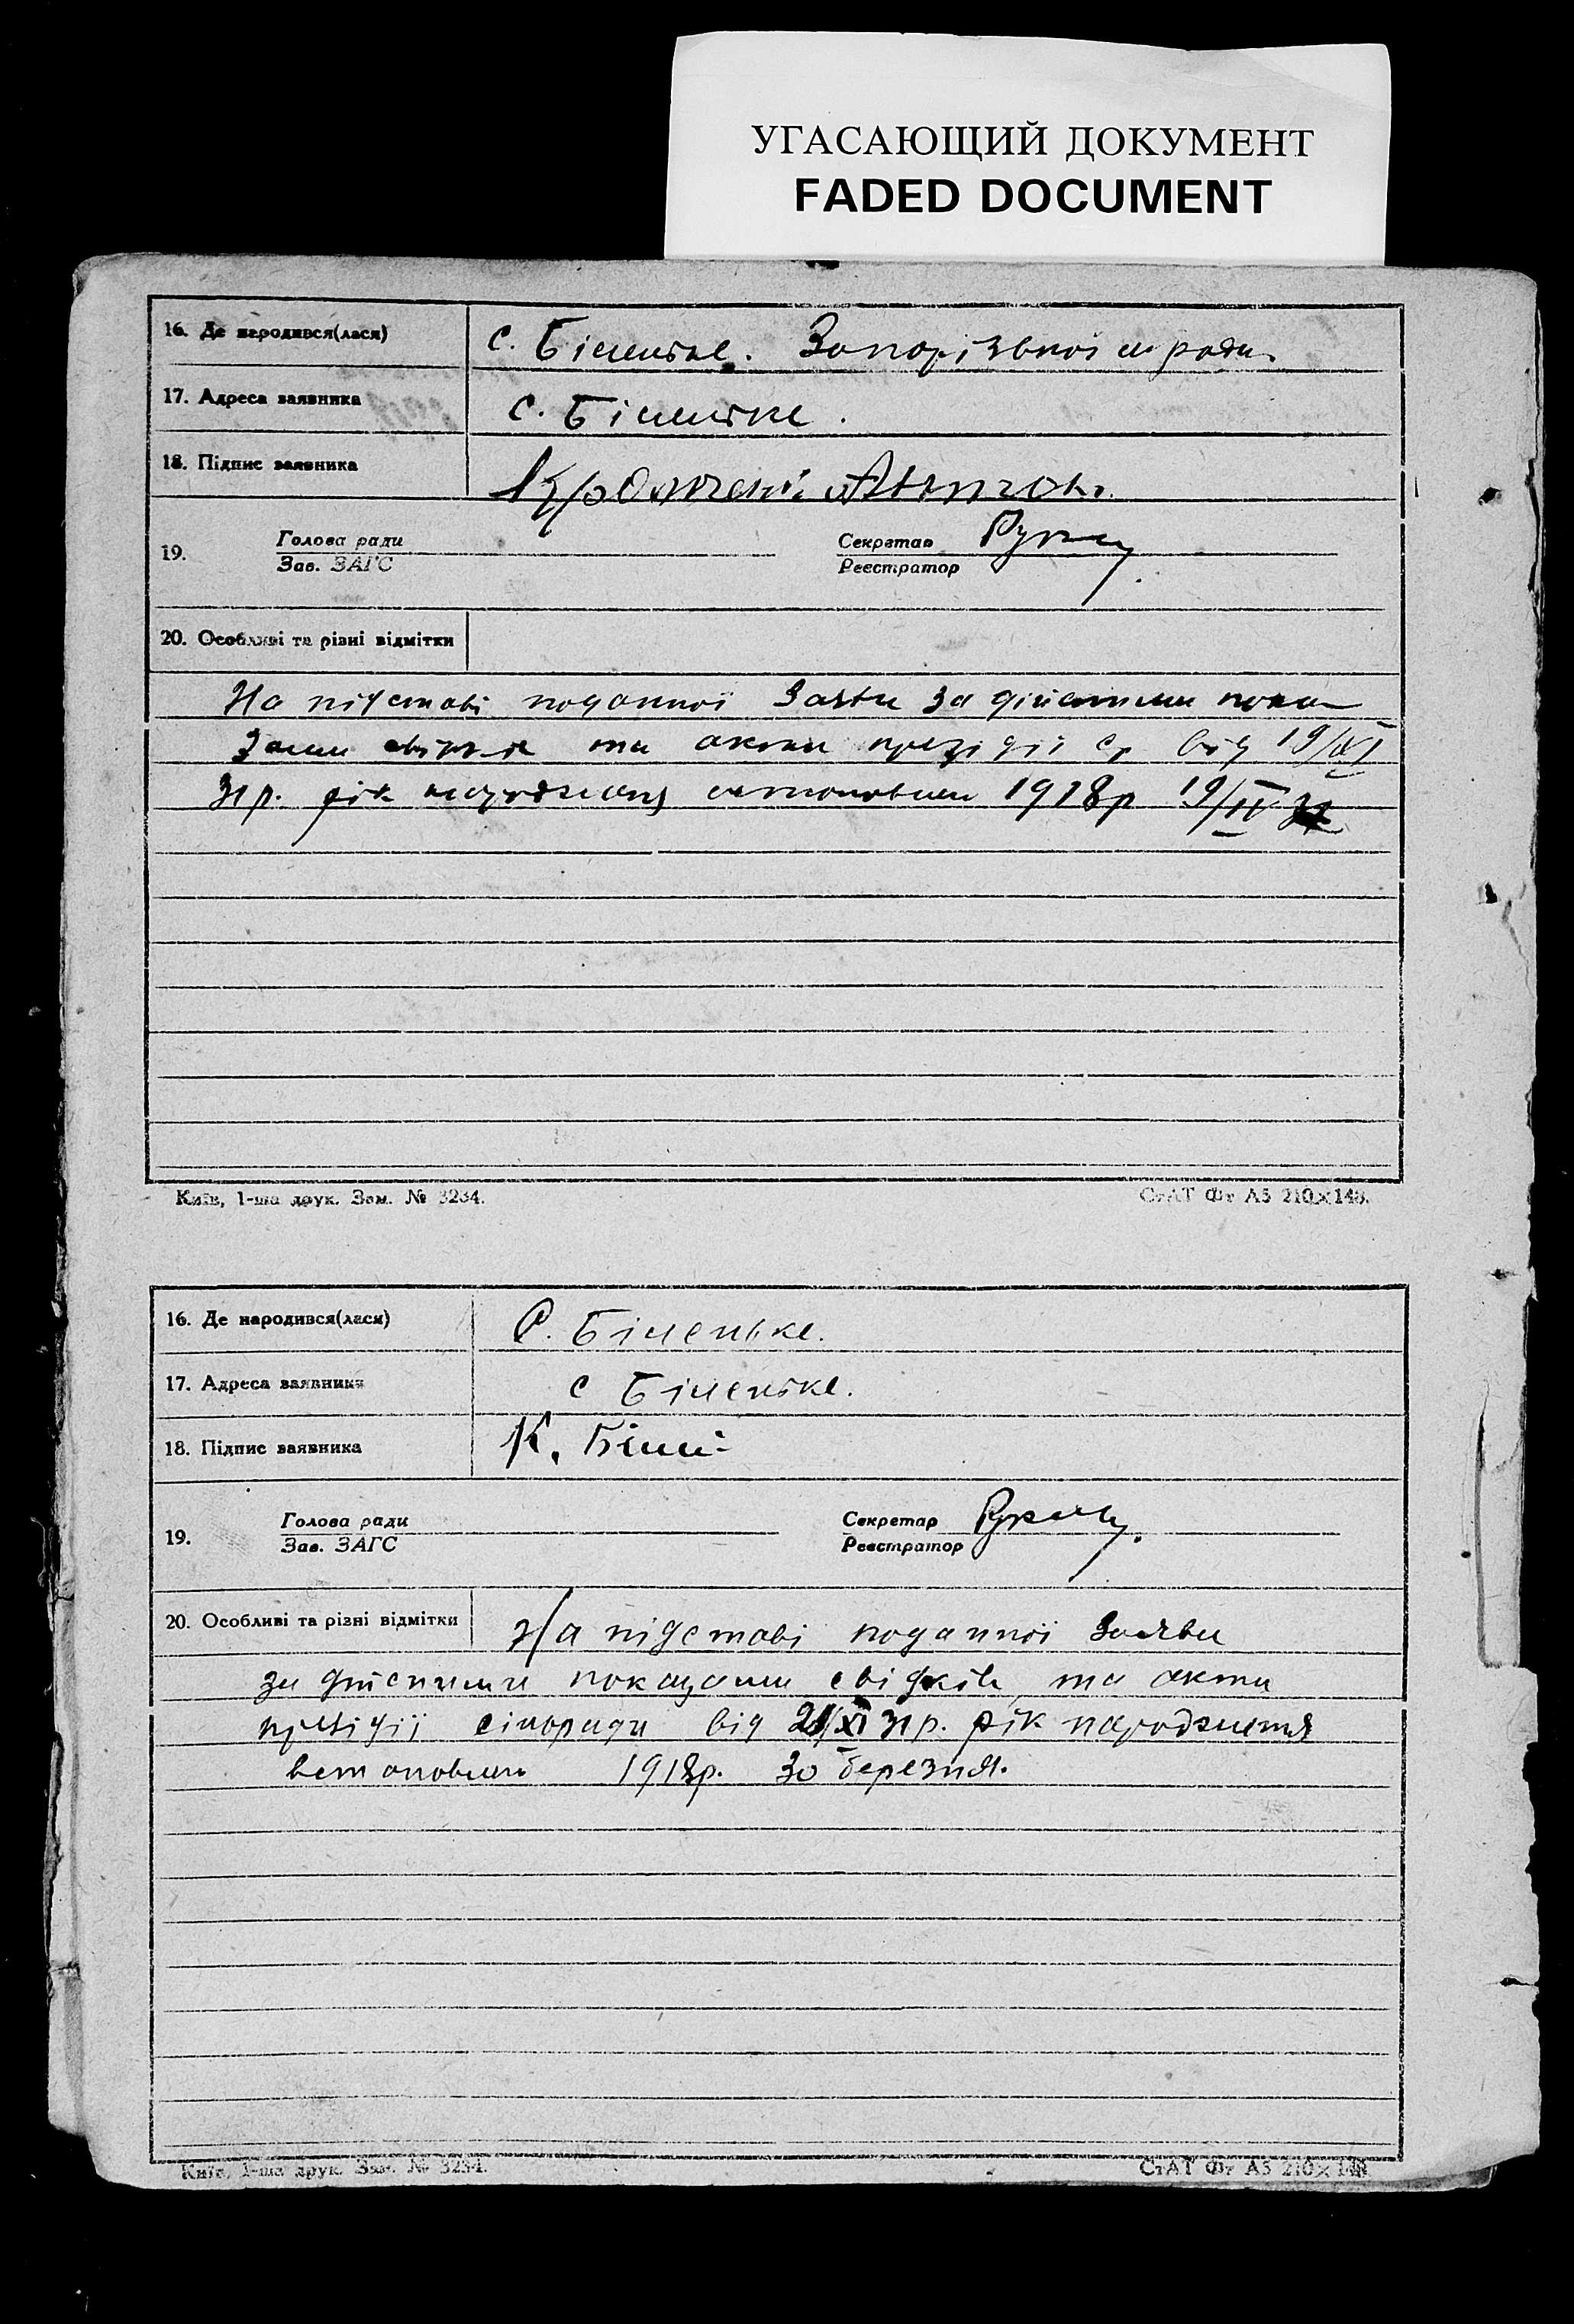 УГАСАЮЩИЙ ДОКУМЕНТ
FADED DOCUMENT
16. Де народився(лася) с. Біленьке. Запорізької м ради
17. Адреса заявника с. Біленьке.
18. Підпис заявника
19. Голова ради Секретар
Зав. ЗАГС Реєстратор
20. Особливі та різні відмітки
На підставі поданної Заяви за дійсними пока
зами та акта президії ср від 19/XI
31 р. рік народження встановлен 1918р 19/IV
Київ, 1-ша друк. Зам. № 3234. СтАТ Фт А5 210×148.
16. Де народився(лася) С. Біленьке.
17. Адреса заявника с Біленьке.
18. Підпис заявника К. Білий
19. Голова ради Секретар
Зав. ЗАГС Реєстратор
20. Особливі та різні відмітки На підставі поданної Заяви
за дійсними показами свідків та акта
президії сільради від 21/XI 31 р. рік народження
встановлен 1918р. 30 березня.
Київ, 1-ша друк. Зам. № 3234. СтАТ Фт А5 210×148